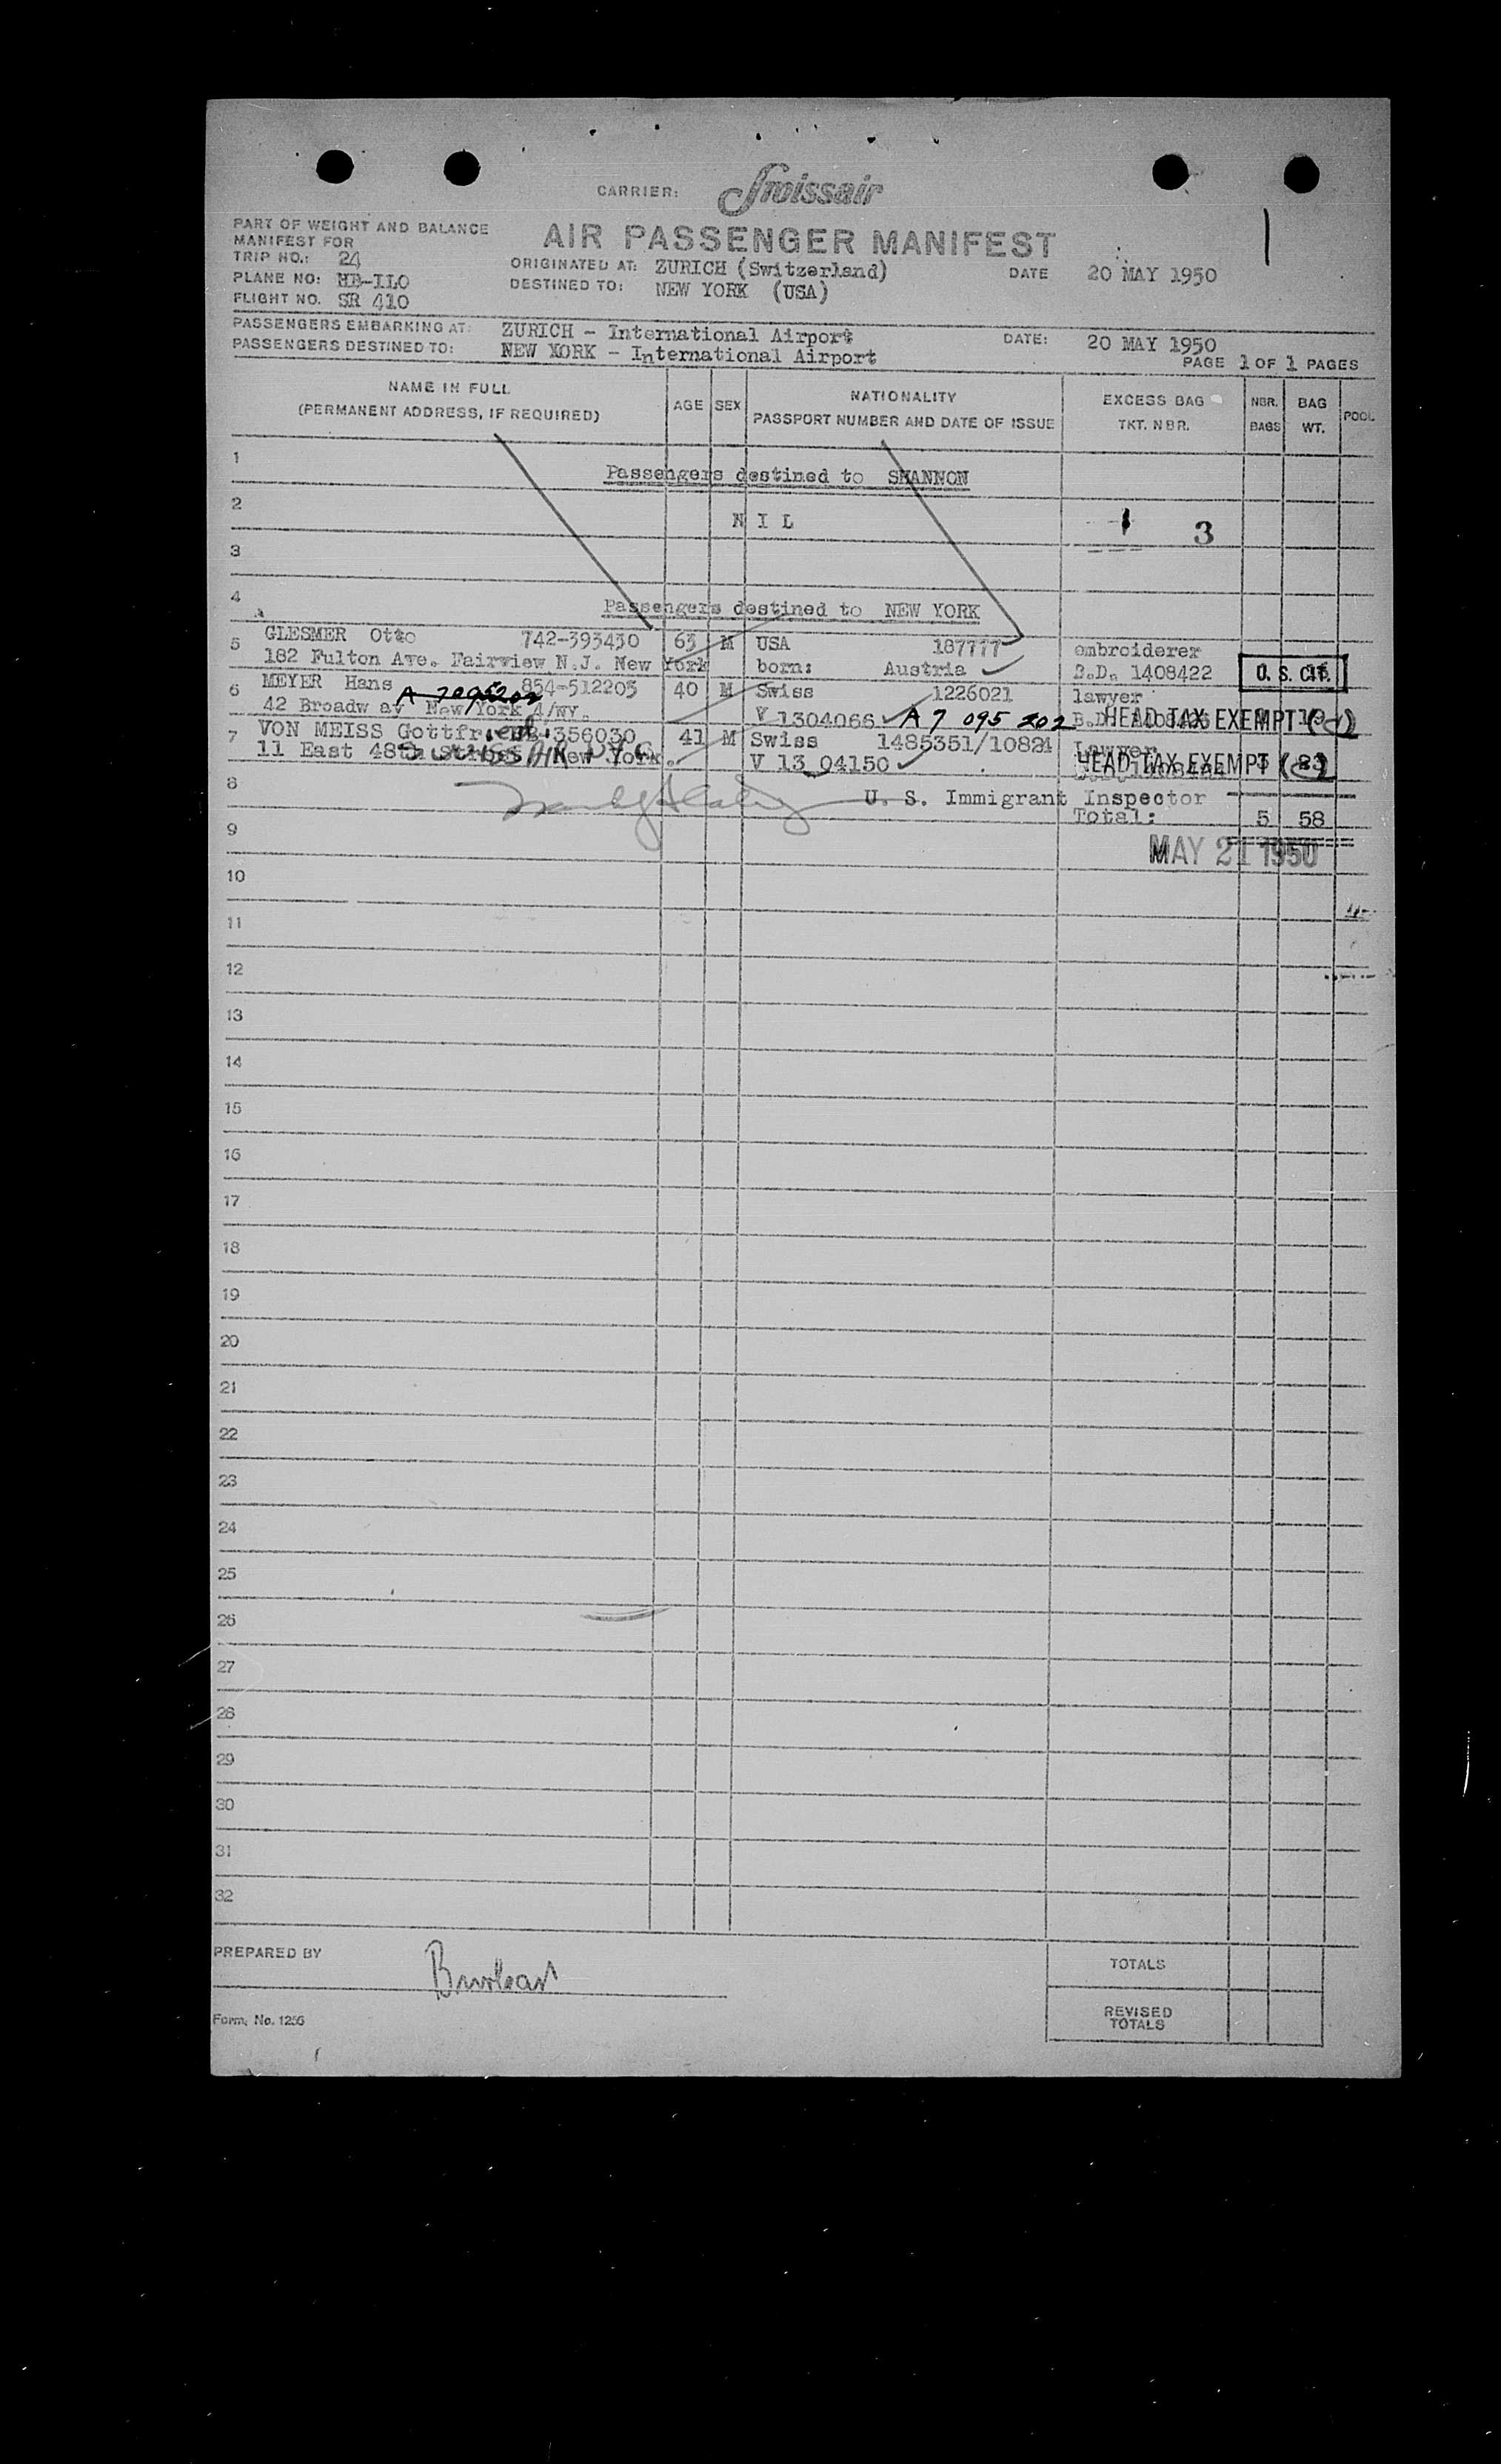 CARRIER: Swissair
PART OF WEIGHT AND BALANCE
MANIFEST FOR
AIR PASSENGER MANIFEST
TRIP NO.: 24
PLANE NO: HB-ILO
FLIGHT NO. SR 410
ORIGINATED AT: ZURICH (Switzerland) DATE 20 MAY 1950
DESTINED TO: NEW YORK (USA)
PASSENGERS EMBARKING AT: ZURICH - International Airport DATE: 20 MAY 1950
PASSENGERS DESTINED TO: NEW YORK - International Airport
PAGE 1 OF 1 PAGES
NAME IN FULL
(PERMANENT ADDRESS, IF REQUIRED)
AGE SEX
NATIONALITY
PASSPORT NUMBER AND DATE OF ISSUE
EXCESS BAG
TKT. NBR.
NBR.
BAGS
BAG
WT.
POOL
1
Passengers destined to SHANNON
2
N I L
3
3
4
Passengers destined to NEW YORK
5 GLESMER Otto 742-393430 63 M USA 187777 embroiderer
182 Fulton Ave. Fairview N.J. New York born: Austria B.D. 1408422 U. S. CIT.
6 MEYER Hans 854-512203 40 M Swiss 1226021 lawyer
A 7095202
42 Broadw ay New York 4/NY. V 1304066 A 7 095 202 HEAD TAX EXEMPT
7 VON MEISS Gottfried 356030 41 M Swiss 1485351/10821 Lawyer
11 East 48th Street New York. V 13 04150 HEAD TAX EXEMPT
SWISSAIR N.Y.C.
8 U. S. Immigrant Inspector
Total: 5 58
9
MAY 21 1950
10
11
12
13
14
15
16
17
18
19
20
21
22
23
24
25
26
27
28
29
30
31
32
PREPARED BY
TOTALS
REVISED
TOTALS
Form. No. 1256